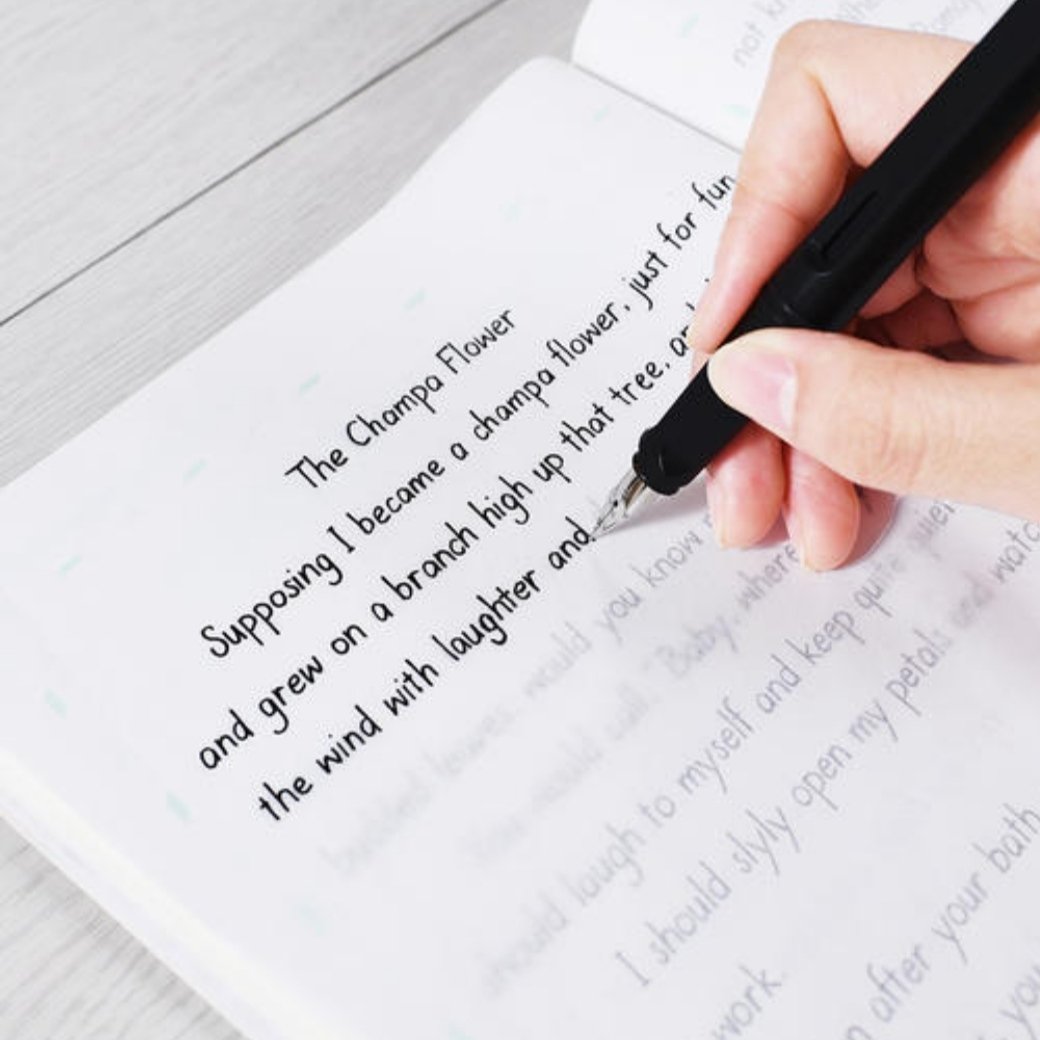 not
The Champa Flower
Supposing I became a champa flower, just for fun,
and grew on a branch high up that tree, and
the wind with laughter and
would you know
You would call, "Baby, where
should laugh to myself and keep quite quiet
I should slyly open my petals and watch
after your bath
work